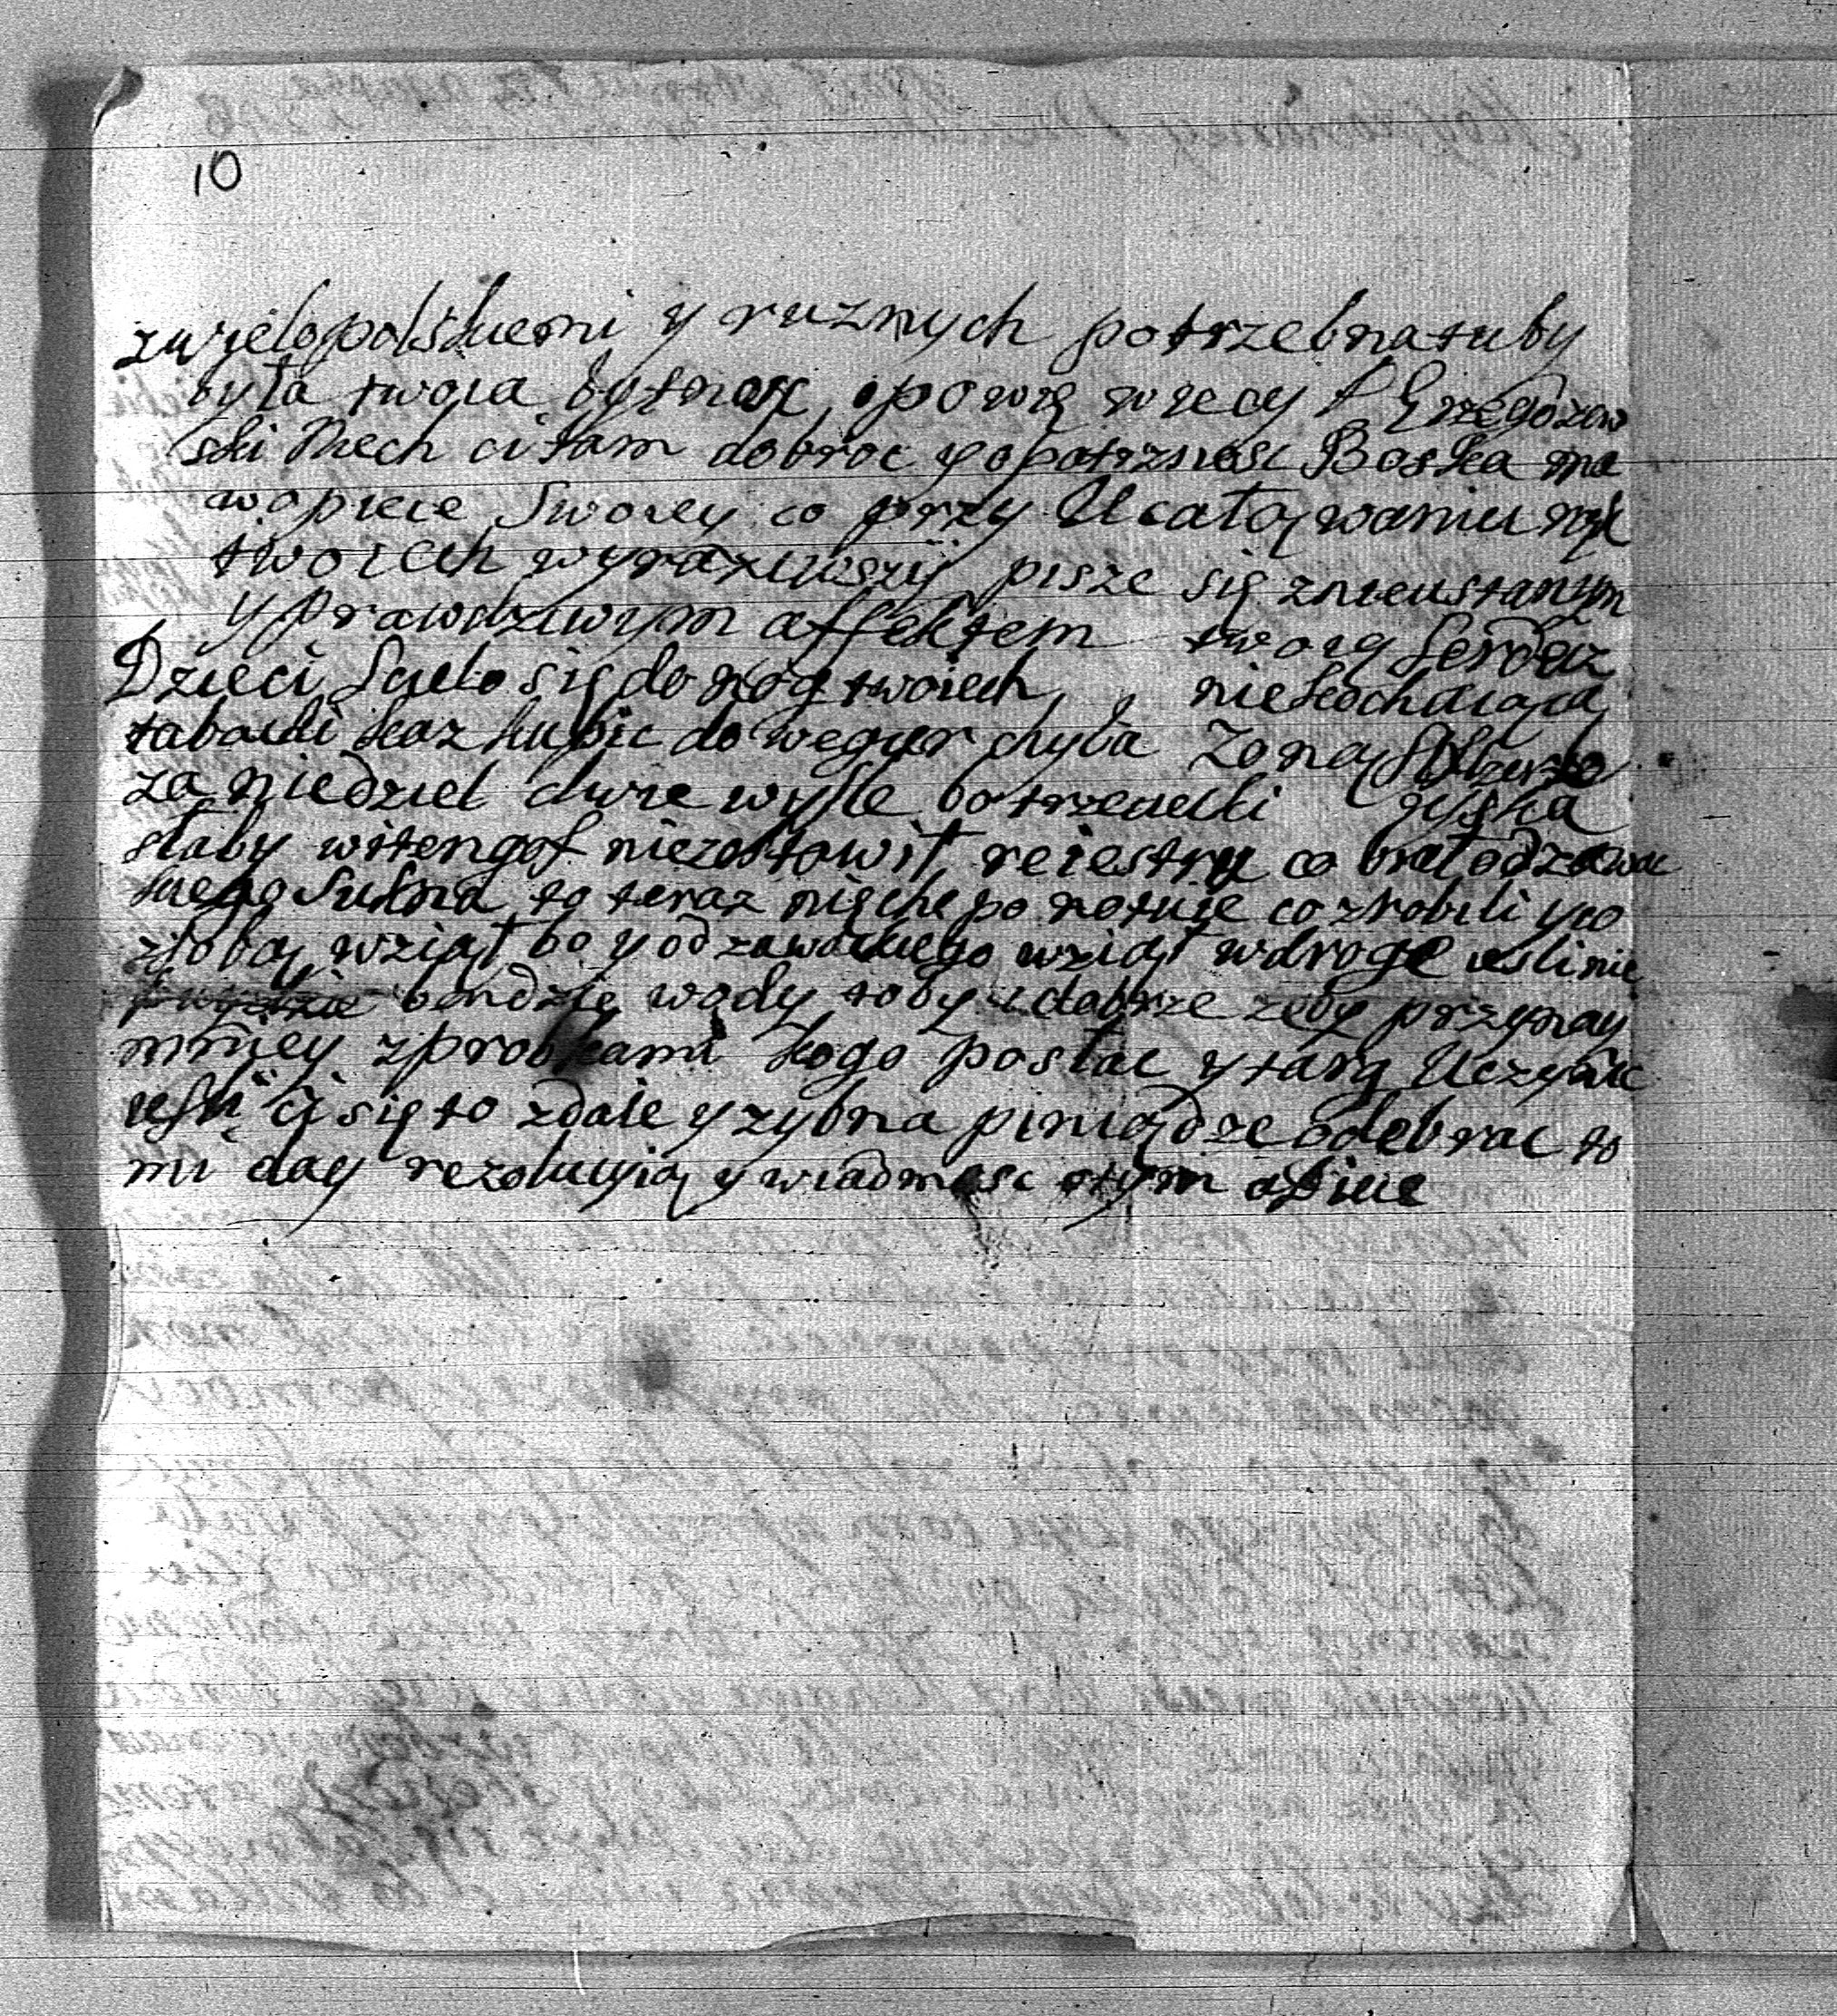 10
zwielopolskiemi y ruznych potrzebna tuby
była twoia bytnosc, opowię więcy P Grzegorzew
ski Niech ci tam dobroc y opatrznosc Boska ma
wopiece Swoiey co przy Ucałowaniu nuk
twoiech wyraziwszy pisze się znieustanym
y prawdziwym affektem twoią Serdecz
Dzieci Scielo się do nog twoiech, niekochaiącą
tabacki kaz kupic do wegier chyba Zoną
za niedziel dwie wysle bo trzeciecki
słaby witengof niezostawił reiestru co brał od zawac
kiego Sukna to teraz niyche po notuie co zrobili y co
zsobą wziął bo y od zawackiego wziął wdroge iesli nie
bendzie wody toby i dobrze zeby przynay
mniey zprobkami kogo posłac y targ Uczynic
iesli ci się to zdaie y zybna piniądze odebrac to
mi day rezolucyią y wiadmosc otym